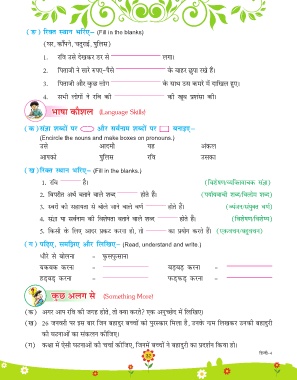 (ङ) रिक्त स्थान भरिए– (Fill in the blanks)
(घर, काँपने, चतुराई, पुलिस)
1. रवि उसे देखकर डर से लगा।
2. पिताजी ने सारे रुपए-पैसे के बाहर छुपा रखे हैं।
3. पिताजी और कुछ लोग के साथ कमरे में दाखिल हुए।
4. सभी लोगों ने रवि की की खूब प्रशंसा की।
भाषा कौशल (Language Skills)
(क) संज्ञा शब्दों पर और सर्वनाम शब्दों पर बनाइए–
(Encircle the nouns and make boxes on pronouns.)
उसे आदमी यह अंकल
आपको पुलिस रवि उसका
(ख) रिक्त स्थान भरिए– (Fill in the blanks.)
1. रवि है। (विशेषण/व्यक्तिवाचक संज्ञा)
2. विपरीत अर्थ बताने वाले शब्द होते हैं। (पर्यायवाची शब्द/विलोम शब्द)
3. स्वरों की सहायता से बोले जाने वाले वर्ण होते हैं। (व्यंजन/संयुक्त वर्ण)
4. संज्ञा या सर्वनाम की विशेषता बताने वाले शब्द होते हैं। (विशेषण/विशेष्य)
5. किसी के लिए आदर प्रकट करना हो, तो का प्रयोग करते हैं। (एकवचन/बहुवचन)
(ग) पढ़िए, समझिए और लिखिए– (Read, understand and write.)
धीरे से बोलना – फुसफुसाना
बकबक करना – चड़चड़ करना –
हड़बड़ करना – फड़फड़ करना –
कुछ अलग से (Something More)
(क) अगर आप रवि की जगह होते, तो क्या करते? एक अनुच्छेद में लिखिए।
(ख) 26 जनवरी पर इस बार जिन बहादुर बच्चों को पुरस्कार मिला है, उनके नाम लिखकर उनकी बहादुरी
की घटनाओं का संकलन कीजिए।
(ग) कक्षा में ऐसी घटनाओं की चर्चा कीजिए, जिनमें बच्चों ने बहादुरी का प्रदर्शन किया हो।
हिन्दी-4